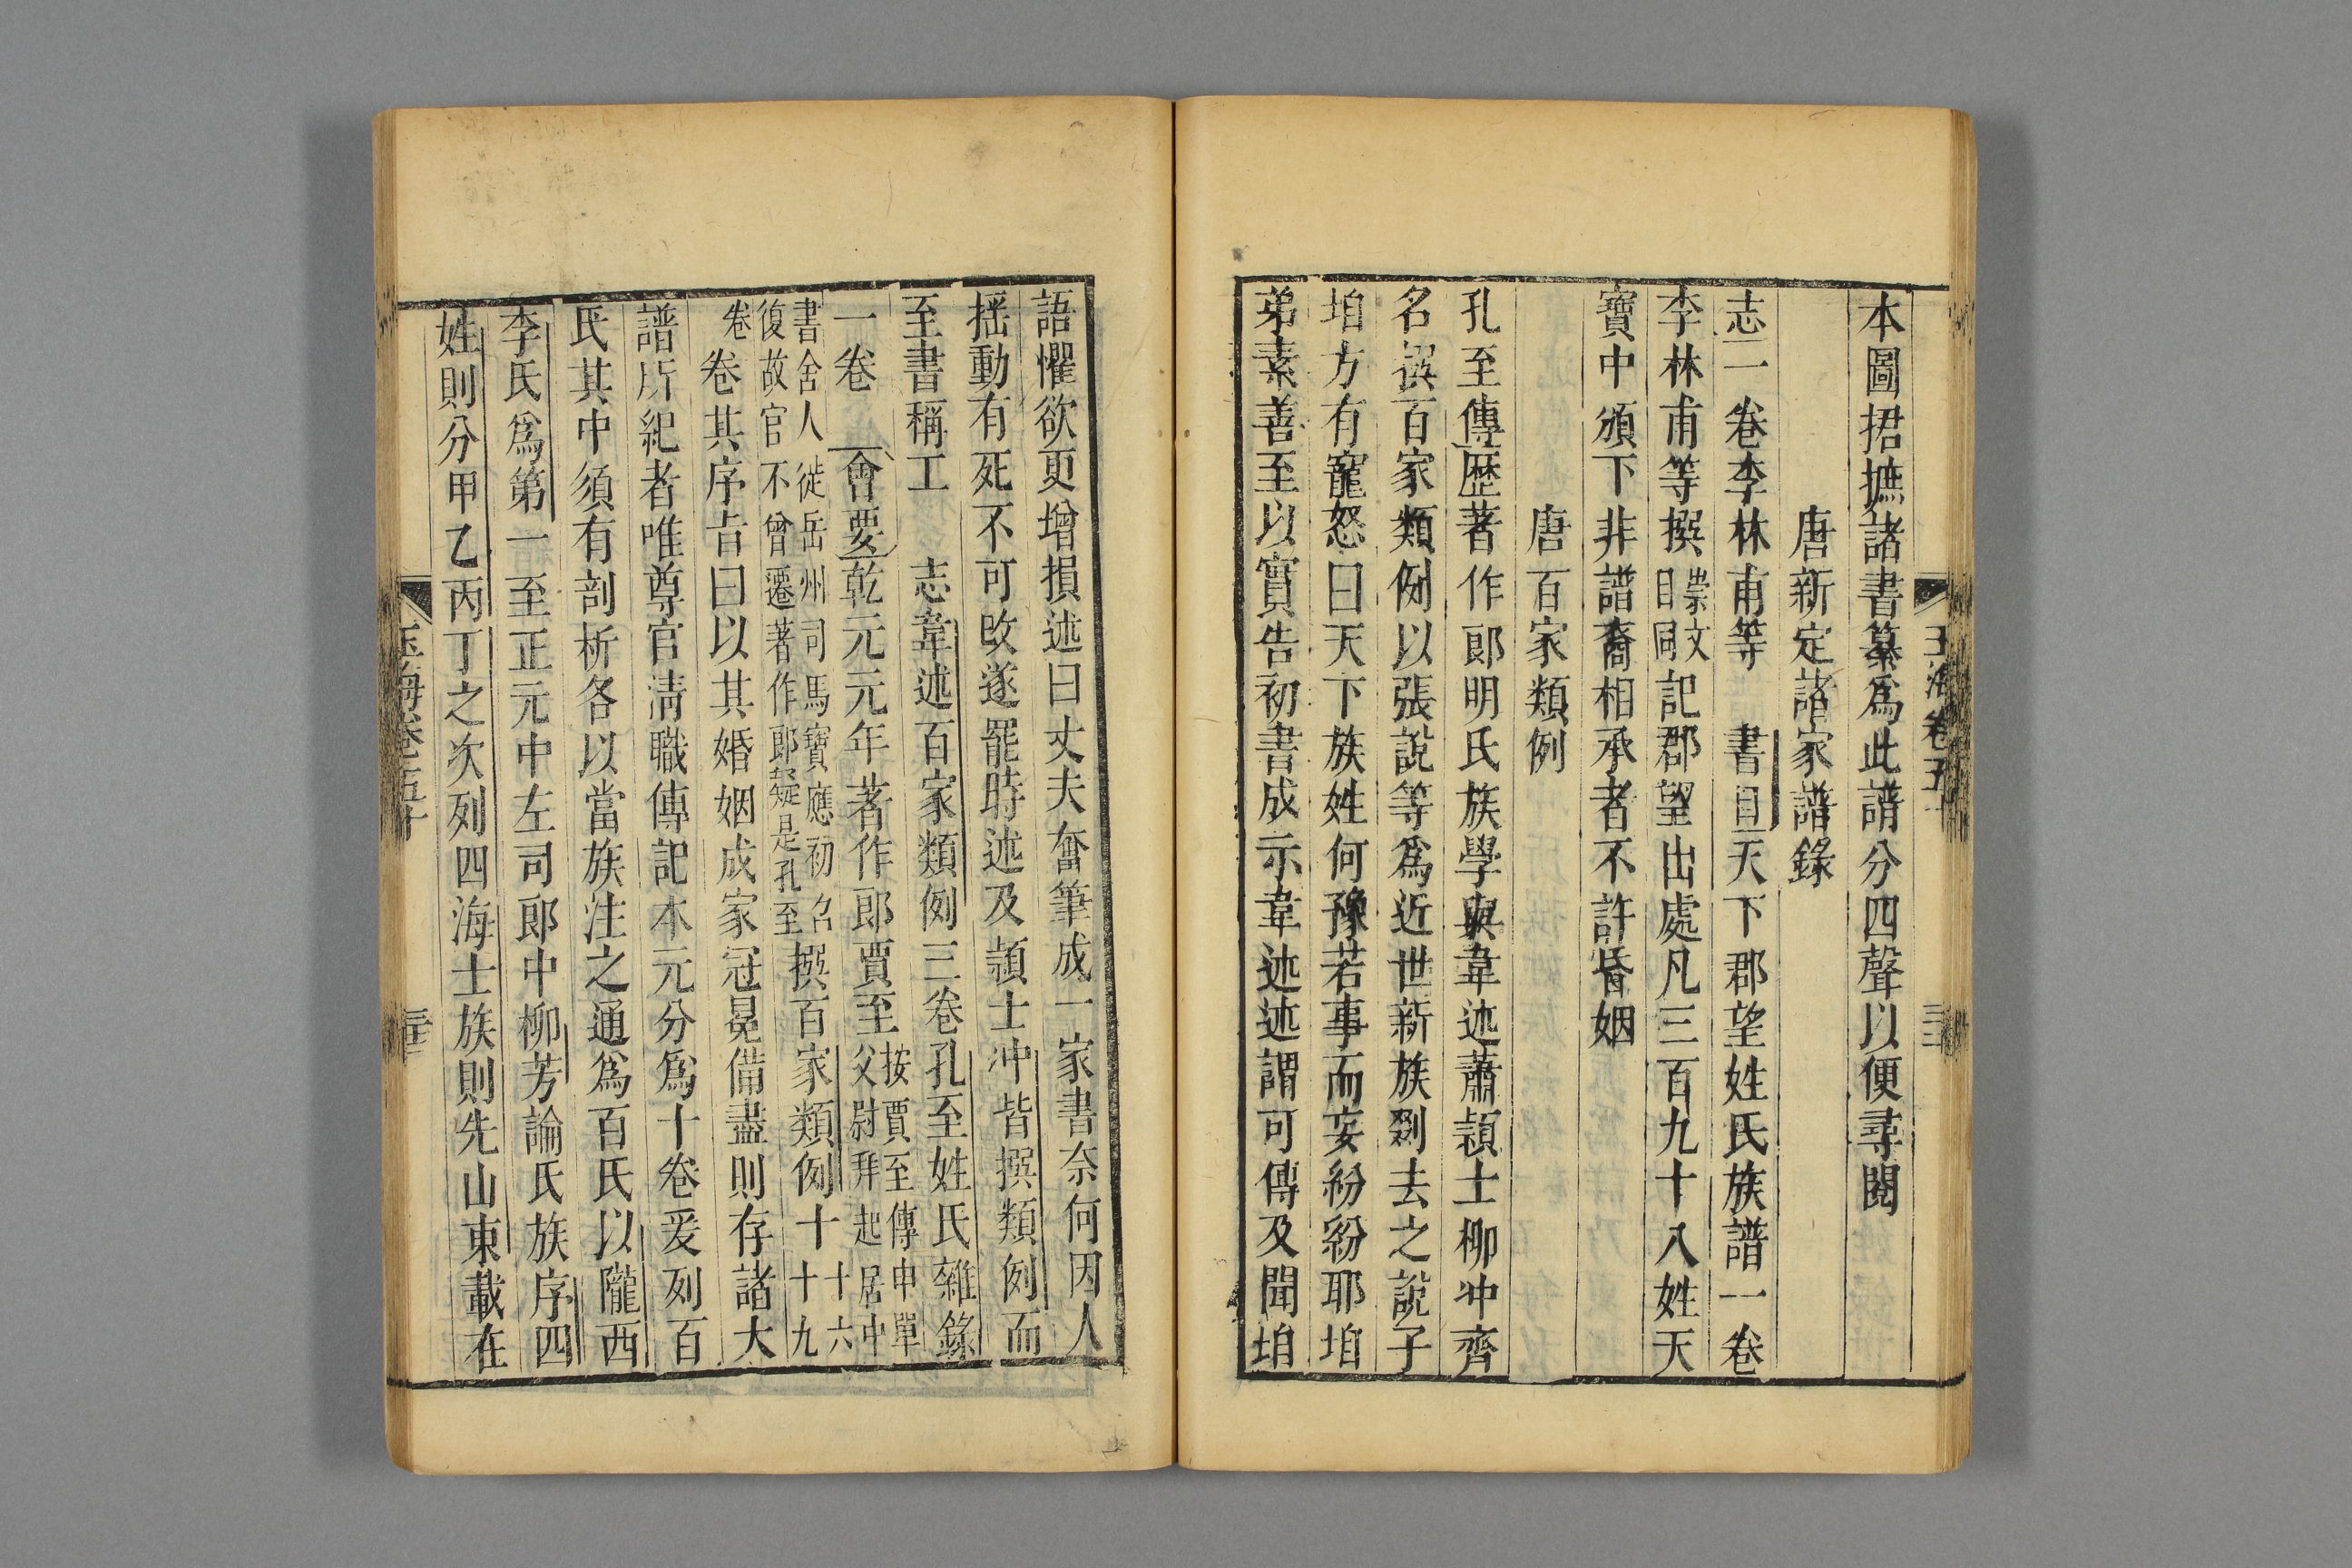 本圖捃摭諸書纂爲此譜分四聲以便尋閱
唐新定諸家譜錄
志一卷李林甫等 書目天下郡望姓氏族譜一卷
李林甫等撰崇文目同記郡望出處凡三百九十八姓天
寶中頒下非譜裔相承者不許昏姻
唐百家類例
孔至傳歴著作郎明氏族學與韋述蕭頴士柳冲齊
名撰百家類例以張說等爲近世新族剟去之說子
垍方有寵怒曰天下族姓何豫若事而妄紛紛耶垍
弟素善至以實告初書成示韋述述謂可傳及聞垍
語懼欲更增損述曰丈夫奮筆成一家書奈何因人
揺動有死不可改遂罷時述及頴士冲皆撰類例而
至書稱工 志韋述百家類例三卷孔至姓氏雜錄
一卷 會要乾元元年著作郎賈至按賈至傳中單父尉拜起居中
書舍人徙岳州司馬寶應初召復故官不曾遷著作郎疑是孔至撰百家類例十十六十九
卷卷其序㫖曰以其婚姻成家冠冕備盡則存諸大
譜所紀者唯尊官淸職傳記本元分爲十卷爰列百
氏其中須有剖析各以當族注之通爲百氏以隴西
李氏爲第一至正元中左司郎中柳芳論氏族序四
姓則分甲乙丙丁之次列四海士族則先山東載在
玉海卷五十